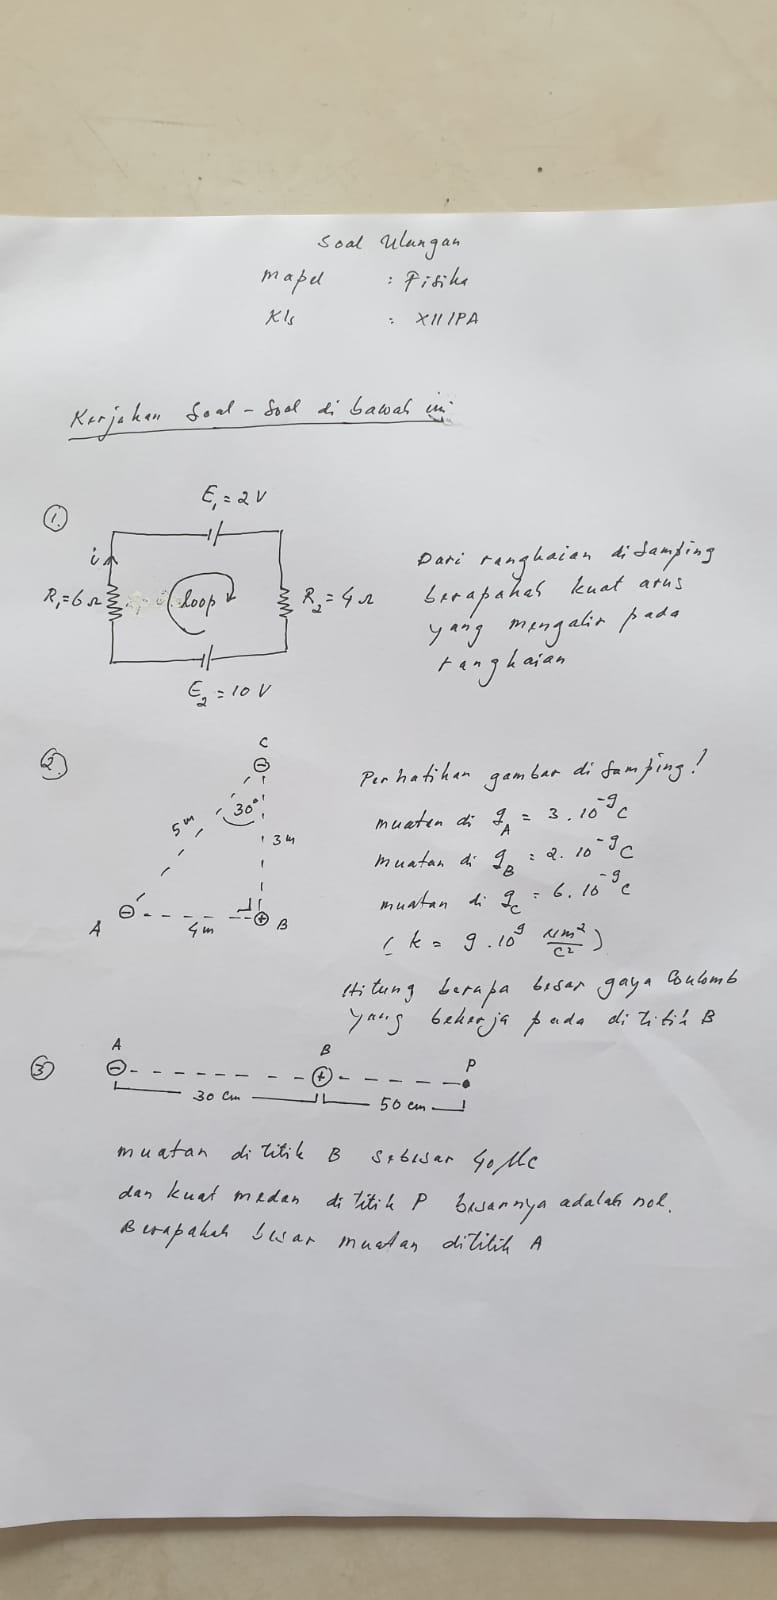 Soal Ulangan
Mapel : Fisika
Kls : XII IPA
Kerjakan Soal-Soal di bawah ini
1.
E1 = 2 V
i
R1 = 6 Ω
loop
R2 = 4 Ω
E2 = 10 V
Dari rangkaian disamping
berapakah kuat arus
yang mengalir pada
rangkaian
2.
C
30°
5 m
3 m
A
4 m
B
Perhatikan gambar di samping!
muatan di qA = 3 . 10⁻⁹ C
muatan di qB = 2 . 10⁻⁹ C
muatan di qC = 6 . 10⁻⁹ C
( k = 9 . 10⁹ Nm²/C² )
Hitung berapa besar gaya Coulomb
yang bekerja pada di titik B
3
A B P
30 cm 50 cm
muatan di titik B sebesar 40 Mc
dan kuat medan di titik P besarnya adalah nol.
Berapakah besar muatan dititik A